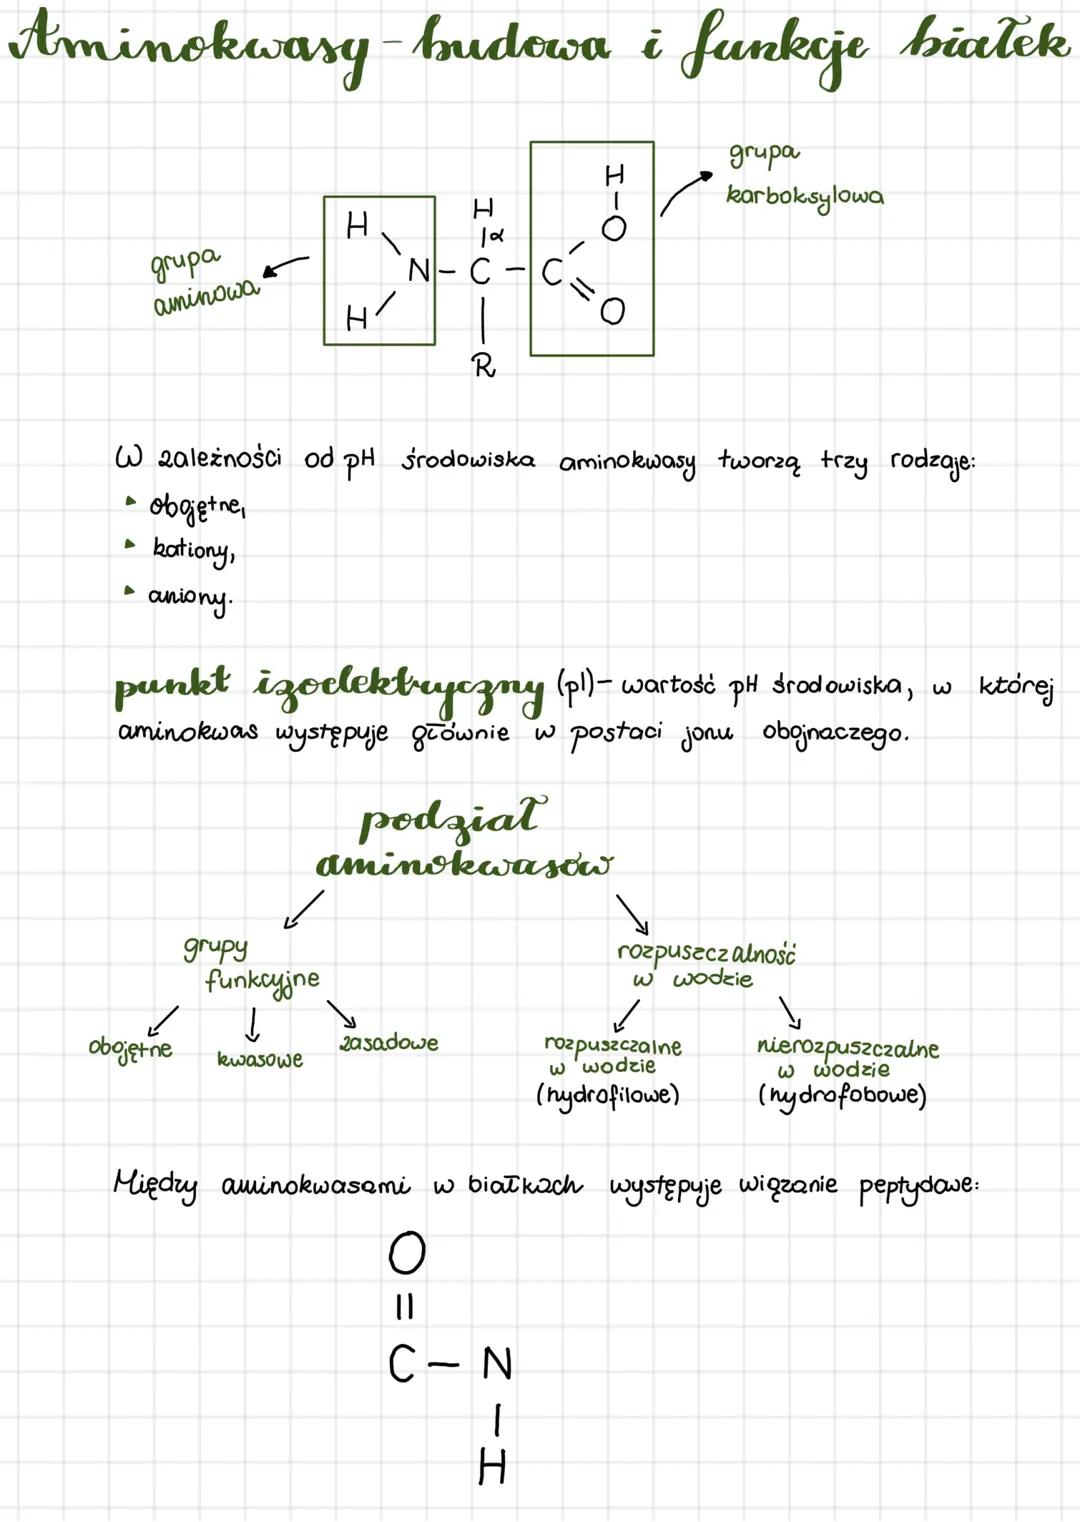 Aminokwasy - budowa i funkcje białek
grupa
karboksylowa
grupa
aminowa
H
H
H
|α
N - C - C
H
O
O
H
|
R
W zależności od pH środowiska aminokwasy tworzą trzy rodzaje:
▸ obojętne,
▸ kationy,
▸ aniony.
punkt izoelektryczny (pI) - wartość pH środowiska, w której
aminokwas występuje głównie w postaci jonu obojnaczego.
podział
aminokwasów
grupy
funkcyjne
rozpuszczalność
w wodzie
obojętne
kwasowe
zasadowe
rozpuszczalne
w wodzie
(hydrofilowe)
nierozpuszczalne
w wodzie
(hydrofobowe)
Między aminokwasami w białkach występuje wiązanie peptydowe:
O
||
C - N
|
H